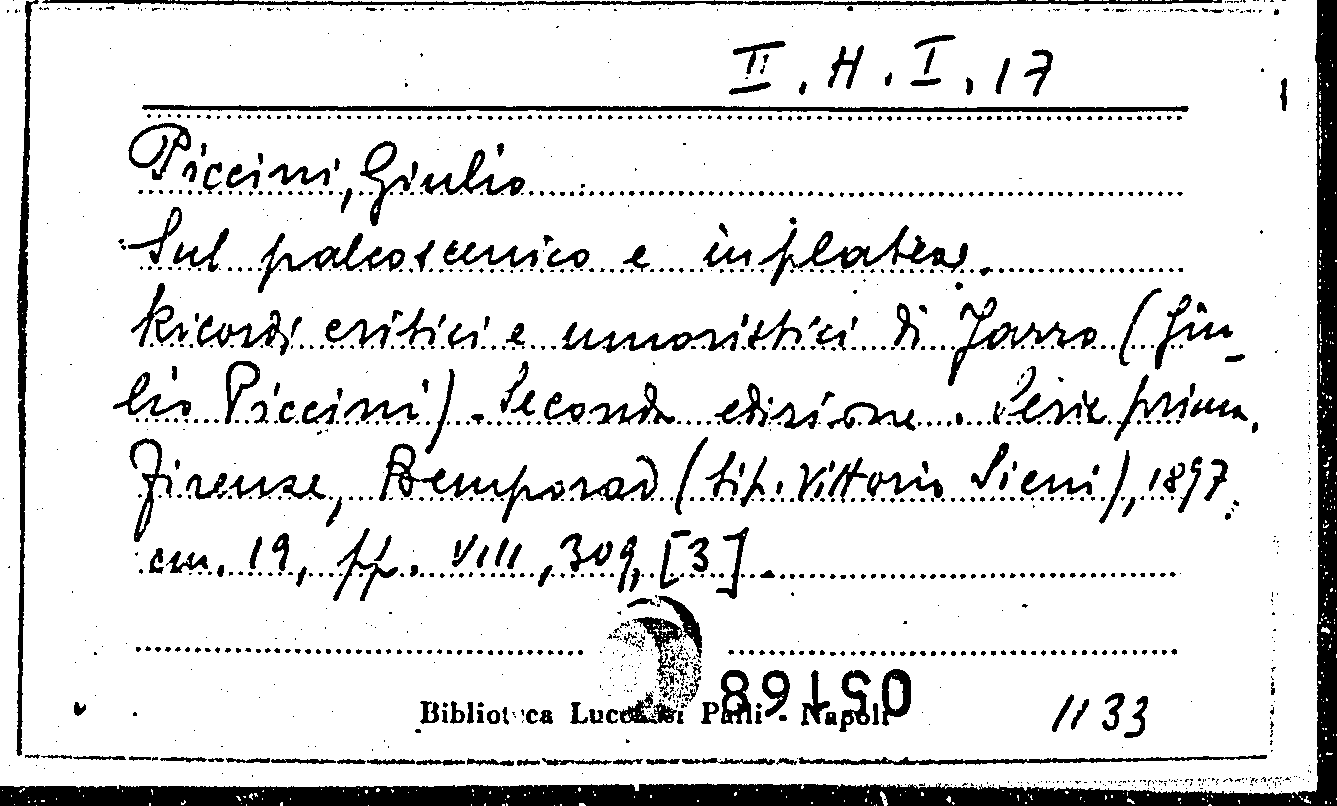 II. H. I, 17
Piccini, Giulio
Sul palcoscenico e in platea.
Ricordi critici e umoristici di Jarro (Giu-
lio Piccini). Seconda edizione. Serie prima.
Firenze, Bemporad (tip. Vittorio Sieni), 1897;
cm. 19, pp. VIII, 309, [3].
05168
Biblioteca Lucchesi Palli - Napoli
1133